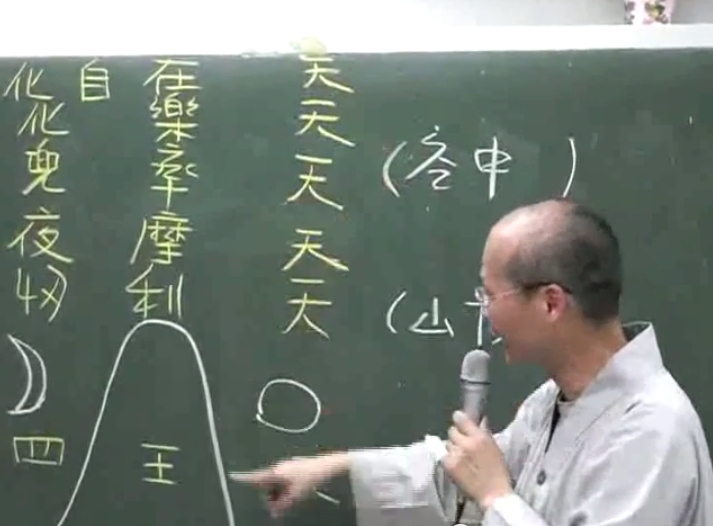 化自在天
化樂天
兜率天 (空中)
夜摩天
忉利天 (山
四王